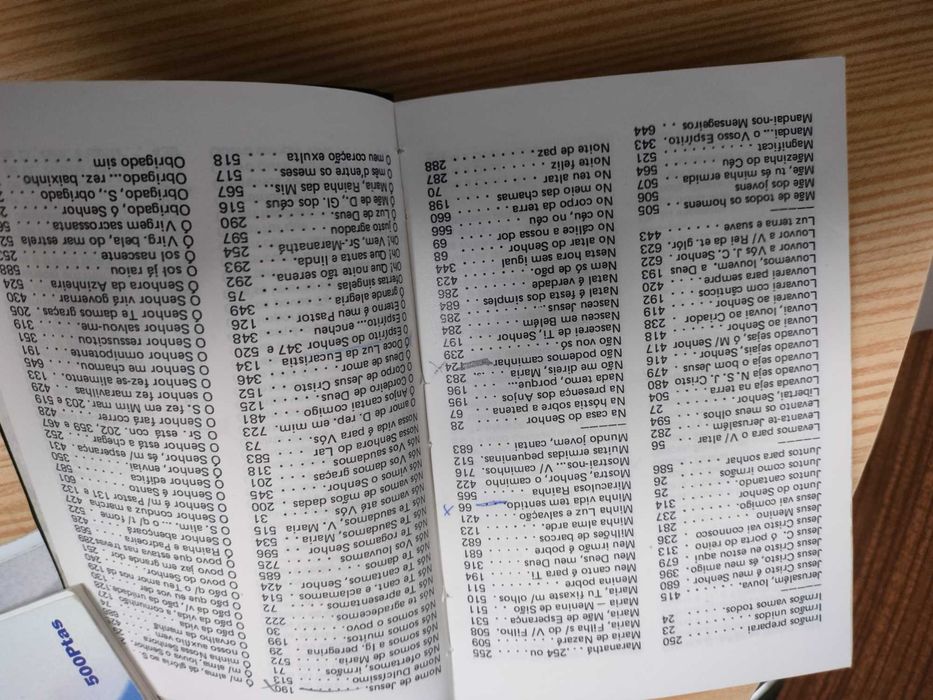 Irmãos preparai 250
Irmãos unidos 23
Irmãos vamos todos. 24
Jerusalém, louva. 415
Jesus Cristo é meu Senhor 680
Jesus Cristo, és meu amigo. 396
Jesus Cristo eu estou aqui. 679
Jesus Cristo, ó porta do reino 313
Jesus Cristo vai connosco 236
Jesus Menino 281
Jesus vai comigo. 237
Junto do Senhor 314
Juntos cantando. 25
Juntos como irmãos 26
Juntos para sonhar 586
Levamos para o V/ altar 56
Levanta-te Jerusalém 282
Levanto os meus olhos 594
Libertai, Senhor 27
Louvada seja na terra 504
Louvado seja N. S. J. Cristo 480
Louvado seja o bom Jesus. 479
Louvado sejais, Senhor 416
Louvado sejas, ó M/ Senhor 417
Louvai ao Senhor 418
Louvai, louvai ao Criador 238
Louvarei ao Senhor 419
Louvarei com cânticos 192
Louvarei para sempre 420
Louvemos, louvem, a Deus 193
Louvor a Vós J. C. Senhor 622
Louvor a V/ Rei da et. glór. 623
Luz terna e suave 443
Mãe de todos os homens 505
Mãe dos jovens 506
Mãe, tu és minha ermida 507
Mãezinha do Céu 564
Magnificat 521
Mandai... o Vosso Espírito. 343
Mandai-nos Mensageiros 644
Maranathá ...254 ou 255
Maria de Nazaré 256
Maria, Filha s/ do V/ Filho. 508
Maria, Mãe de Esperança 509
Maria — Menina de Sião 531
Maria, Tu fixaste m/ olhos 510
Menina pobre 511
Meu canto é para Ti. 194
Meu Deus, meu Deus 316
Meu irmão é pobre 681
Milhões de barcos 682
Minha alma arde. 123
Minha Luz e salvação 421
Minha vida tem sentido 66
Miraculosa Rainha 565
Mostra, Senhor, o caminho 422
Mostrai-nos... V/ caminhos. 716
Muitas ermidas pequeninas. 512
Mundo jovem, cantai. 683
Na casa do Senhor 28
Na hóstia sobre a patena 67
Na presença dos Anjos 195
Nada temo, porque... 196
Não me direis, Maria 283
Não podemos caminhar 24
Não vou só 239
Nascerei de Ti, Senhor 197
Nasceu em Belém 284
Nasceu Jesus 285
Natal é festa dos simples 684
Natal é verdade 286
Nem só de pão. 423
Nesta hora sem igual 344
No altar do Senhor 68
No cálice a nossa dor 69
No céu, no céu 560
No corpo da terra 198
No meio das chamas 70
No teu altar 287
Noite feliz
Noite de paz 288
Nome de Jesus. 190
Nome Dulcíssimo 513
Nós ofertamos, irmãos 71
Nós somos de Maria. 572
Nós somos a Ig. peregrina 29
Nós somos muitos 199
Nós somos o povo 30
Nós Te agradecemos 222
Nós Te apresentamos 72
Nós Te cantamos e aclamamos. 514
Nós Te damos, Senhor 424
Nós Te louvamos 685
Nós Te rogamos Senhor 725
Nós Te saudamos 596
Nós Te saudamos, Maria 515
Nós vamos até Vós, V. Maria 534
Nós vamos de mãos dadas 31
Nós vimos o Senhor 200
Nós Vos damos graças 345
Nós Vos saudamos 201
Nossa Senhora do Lar 318
Nossa vida é para Vós. 583
O amor de D. rep. em mim. 73
Ó Anjos, cantai comigo 723
Ó Cordeiro de Deus 481
Ó Corpo de Jesus Cristo 125
Ó Deus de amor 152
Ó Doce Luz da Eucaristia 346
Ó Espírito do Senhor 347 e 520
Ó Espírito... encheu 348
O Eterno é meu Pastor 126
Ó grande alegria 349
Ofertas singelas 75
Oh! Que noite tão serena 292
Oh! Que santa e linda. 293
Oh! Vem, Sr.-Maranathá 254
O justo agradou 597
Ó Luz de Deus. 290
Ó Mãe de D., Gl. dos céus 516
Ó Maria, Rainha das Mis. 567
O mês d'entre os meses 517
O meu coração exulta 518
O nosso auxílio vem
O pão da manhã
O pão da vida, a comunhão
O povo de Deus
O povo jaz em grande dor 251
O povo que estava nas trevas 289
Ó Rainha e Padroeira 568
O Senhor abençoará 425
O Senhor conduza a chama 522
O Senhor é m/ Pastor 131 e 427
O Senhor é Santo 601
O Senhor edifica 587
Ó Senhor, enviai. 350
Ó Senhor, és m/ esperança. 431
O Senhor está a chegar. 252
O Sr. está con. 202, 359 e 467
O Senhor fará correr 428
O S. fez em M/m mar. 203 e 519
O Senhor fez maravilhas 429
O Senhor fez-se alimento 133
O Senhor me chamou 645
O Senhor omnipotente 191
O Senhor ressuscitou 351
Ó Senhor salvou-me. 319
Ó Senhor Te damos graças 205
O Senhor virá governar 430
Ó Senhora da Azinheira 524
O sol já raiou 588
Ó sol nascente 253
Ó Virg. bela, do mar estrela
Ó Virgem sacrossanta
Obrigado, ó Senhor
Obrigado, S., obrigado
Obrigado ... rez. baixinho
Obrigado sim
500Ptas